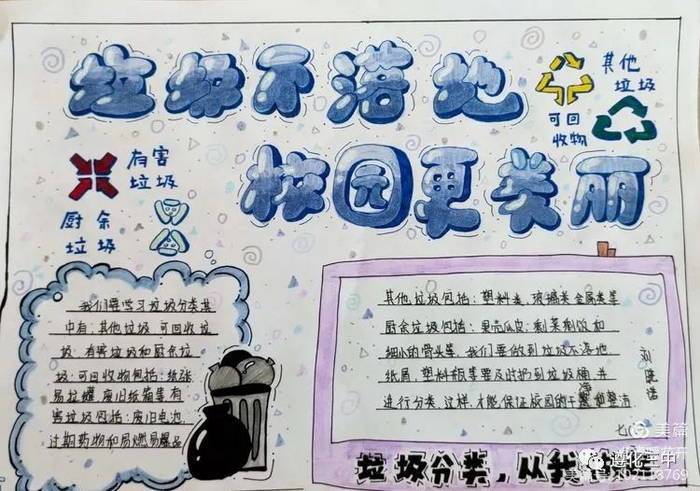 垃圾不落地
校园更美丽
其他
垃圾
可回
收物
有害
垃圾
厨余
垃圾
我们要学习垃圾分类其
中有:其他垃圾 可回收垃
圾:有害垃圾和厨余垃
圾:可回收物包括:纸张
易拉罐 废旧纸箱等有
害垃圾包括:废旧电池
过期药物和易燃易爆品
其他垃圾包括:塑料类、玻璃类金属类等
厨余垃圾包括:果壳瓜皮:剩菜剩饭和
细小的骨头等,我们要做到垃圾不落地
纸屑,塑料瓶等要及时扔到垃圾桶 并
进行分类、这样,才能保证校园的干净和整洁
垃圾分类,从我
美篇